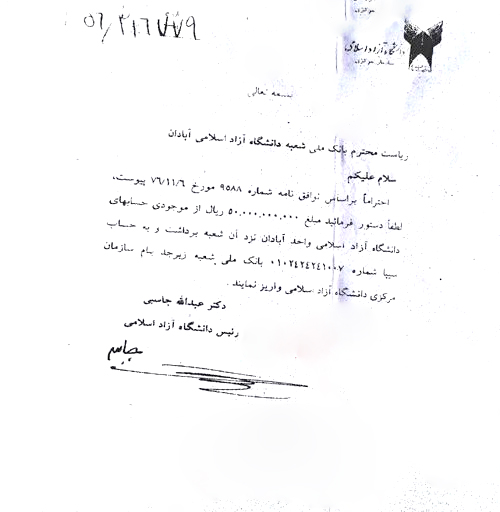 ۵۲/۳۱۶۷۷۹
دانشگاه آزاد اسلامی
بسمه تعالی
ریاست محترم بانک ملی شعبه دانشگاه آزاد اسلامی آبادان
سلام علیکم
احتراماً براساس توافق نامه شماره ۹۵۸۸ مورخ ۷۶/۱۱/۶ پیوست،
لطفاً دستور فرمائید مبلغ ۵۰.۰۰۰.۰۰۰.۰۰۰ ریال از موجودی حسابهای
دانشگاه آزاد اسلامی واحد آبادان نزد آن شعبه برداشت و به حساب
سیبا شماره ۰۱۰۲۴۲۴۲۴۱۰۰۷ بانک ملی شعبه زیرجد بنام سازمان
مرکزی دانشگاه آزاد اسلامی واریز نمایند.
دکتر عبدالله جاسبی
رئیس دانشگاه آزاد اسلامی